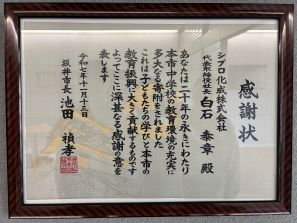 感謝状
シプロ化成株式会社
代表取締役社長 白石 泰章 殿
あなたは二十年の永きにわたり
本市中学校の教育環境の充実に
多大なる寄附をされました
これは子どもたちの学びと本市の
教育振興に大きく貢献するものです
よってここに深甚なる感謝の意を
表します
令和七年十一月十三日
坂井市長 池田 禎孝